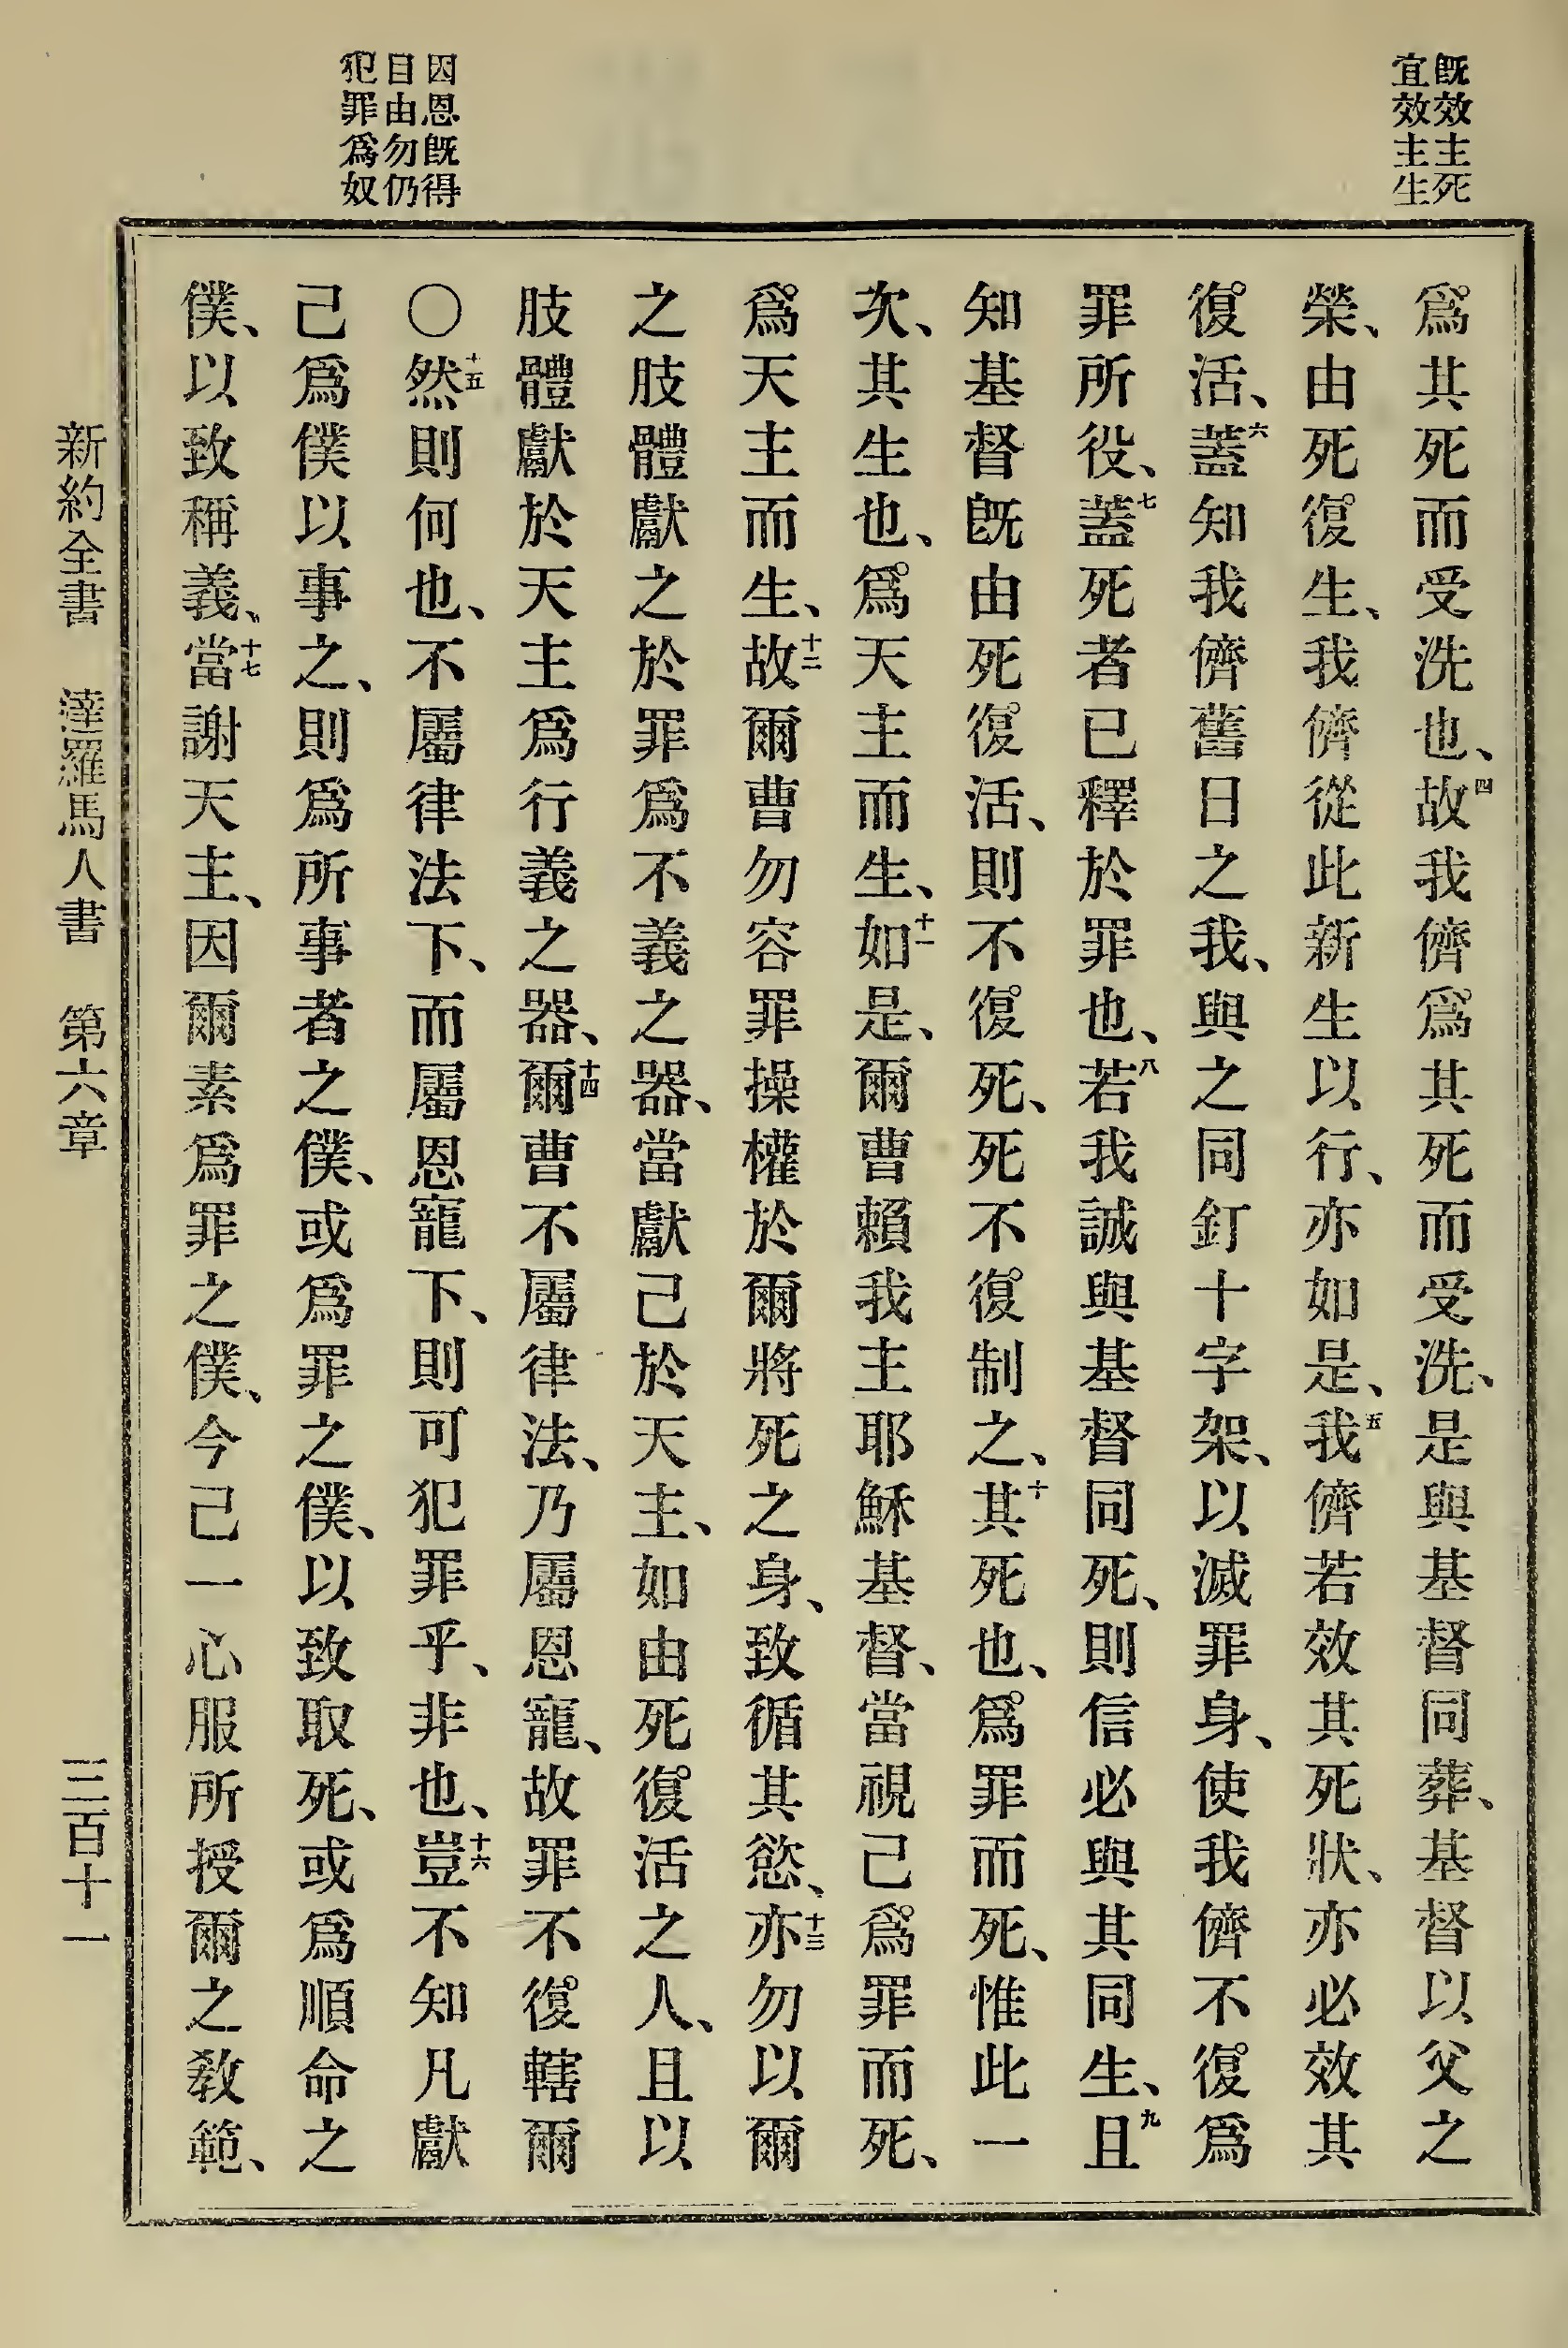 既效主死
宜效主生
因恩既得
自由勿仍
犯罪爲奴
爲其死而受洗也、四故我儕爲其死而受洗、是與基督同葬、基督以父之
榮、由死復生、我儕從此新生以行、亦如是、五我儕若效其死狀、亦必效其
復活、六蓋知我儕舊日之我、與之同釘十字架、以滅罪身、使我儕不復爲
罪所役、七蓋死者已釋於罪也、八若我誠與基督同死、則信必與其同生、九且
知基督旣由死復活、則不復死、死不復制之、十其死也、爲罪而死、惟此一
次、其生也、爲天主而生、十一如是、爾曹賴我主耶穌基督、當視己爲罪而死、
爲天主而生、十二故爾曹勿容罪操權於爾將死之身、致循其慾、十三亦勿以爾
之肢體獻之於罪爲不義之器、當獻己於天主、如由死復活之人、且以
肢體獻於天主爲行義之器、十四爾曹不屬律法、乃屬恩寵、故罪不復轄爾
〇十五然則何也、不屬律法下、而屬恩寵下、則可犯罪乎、非也、十六豈不知凡獻
己爲僕以事之、則爲所事者之僕、或爲罪之僕、以致取死、或爲順命之
僕、以致稱義、十七當謝天主、因爾素爲罪之僕、今已一心服所授爾之教範、
新約全書 達羅馬人書 第六章 三百十一